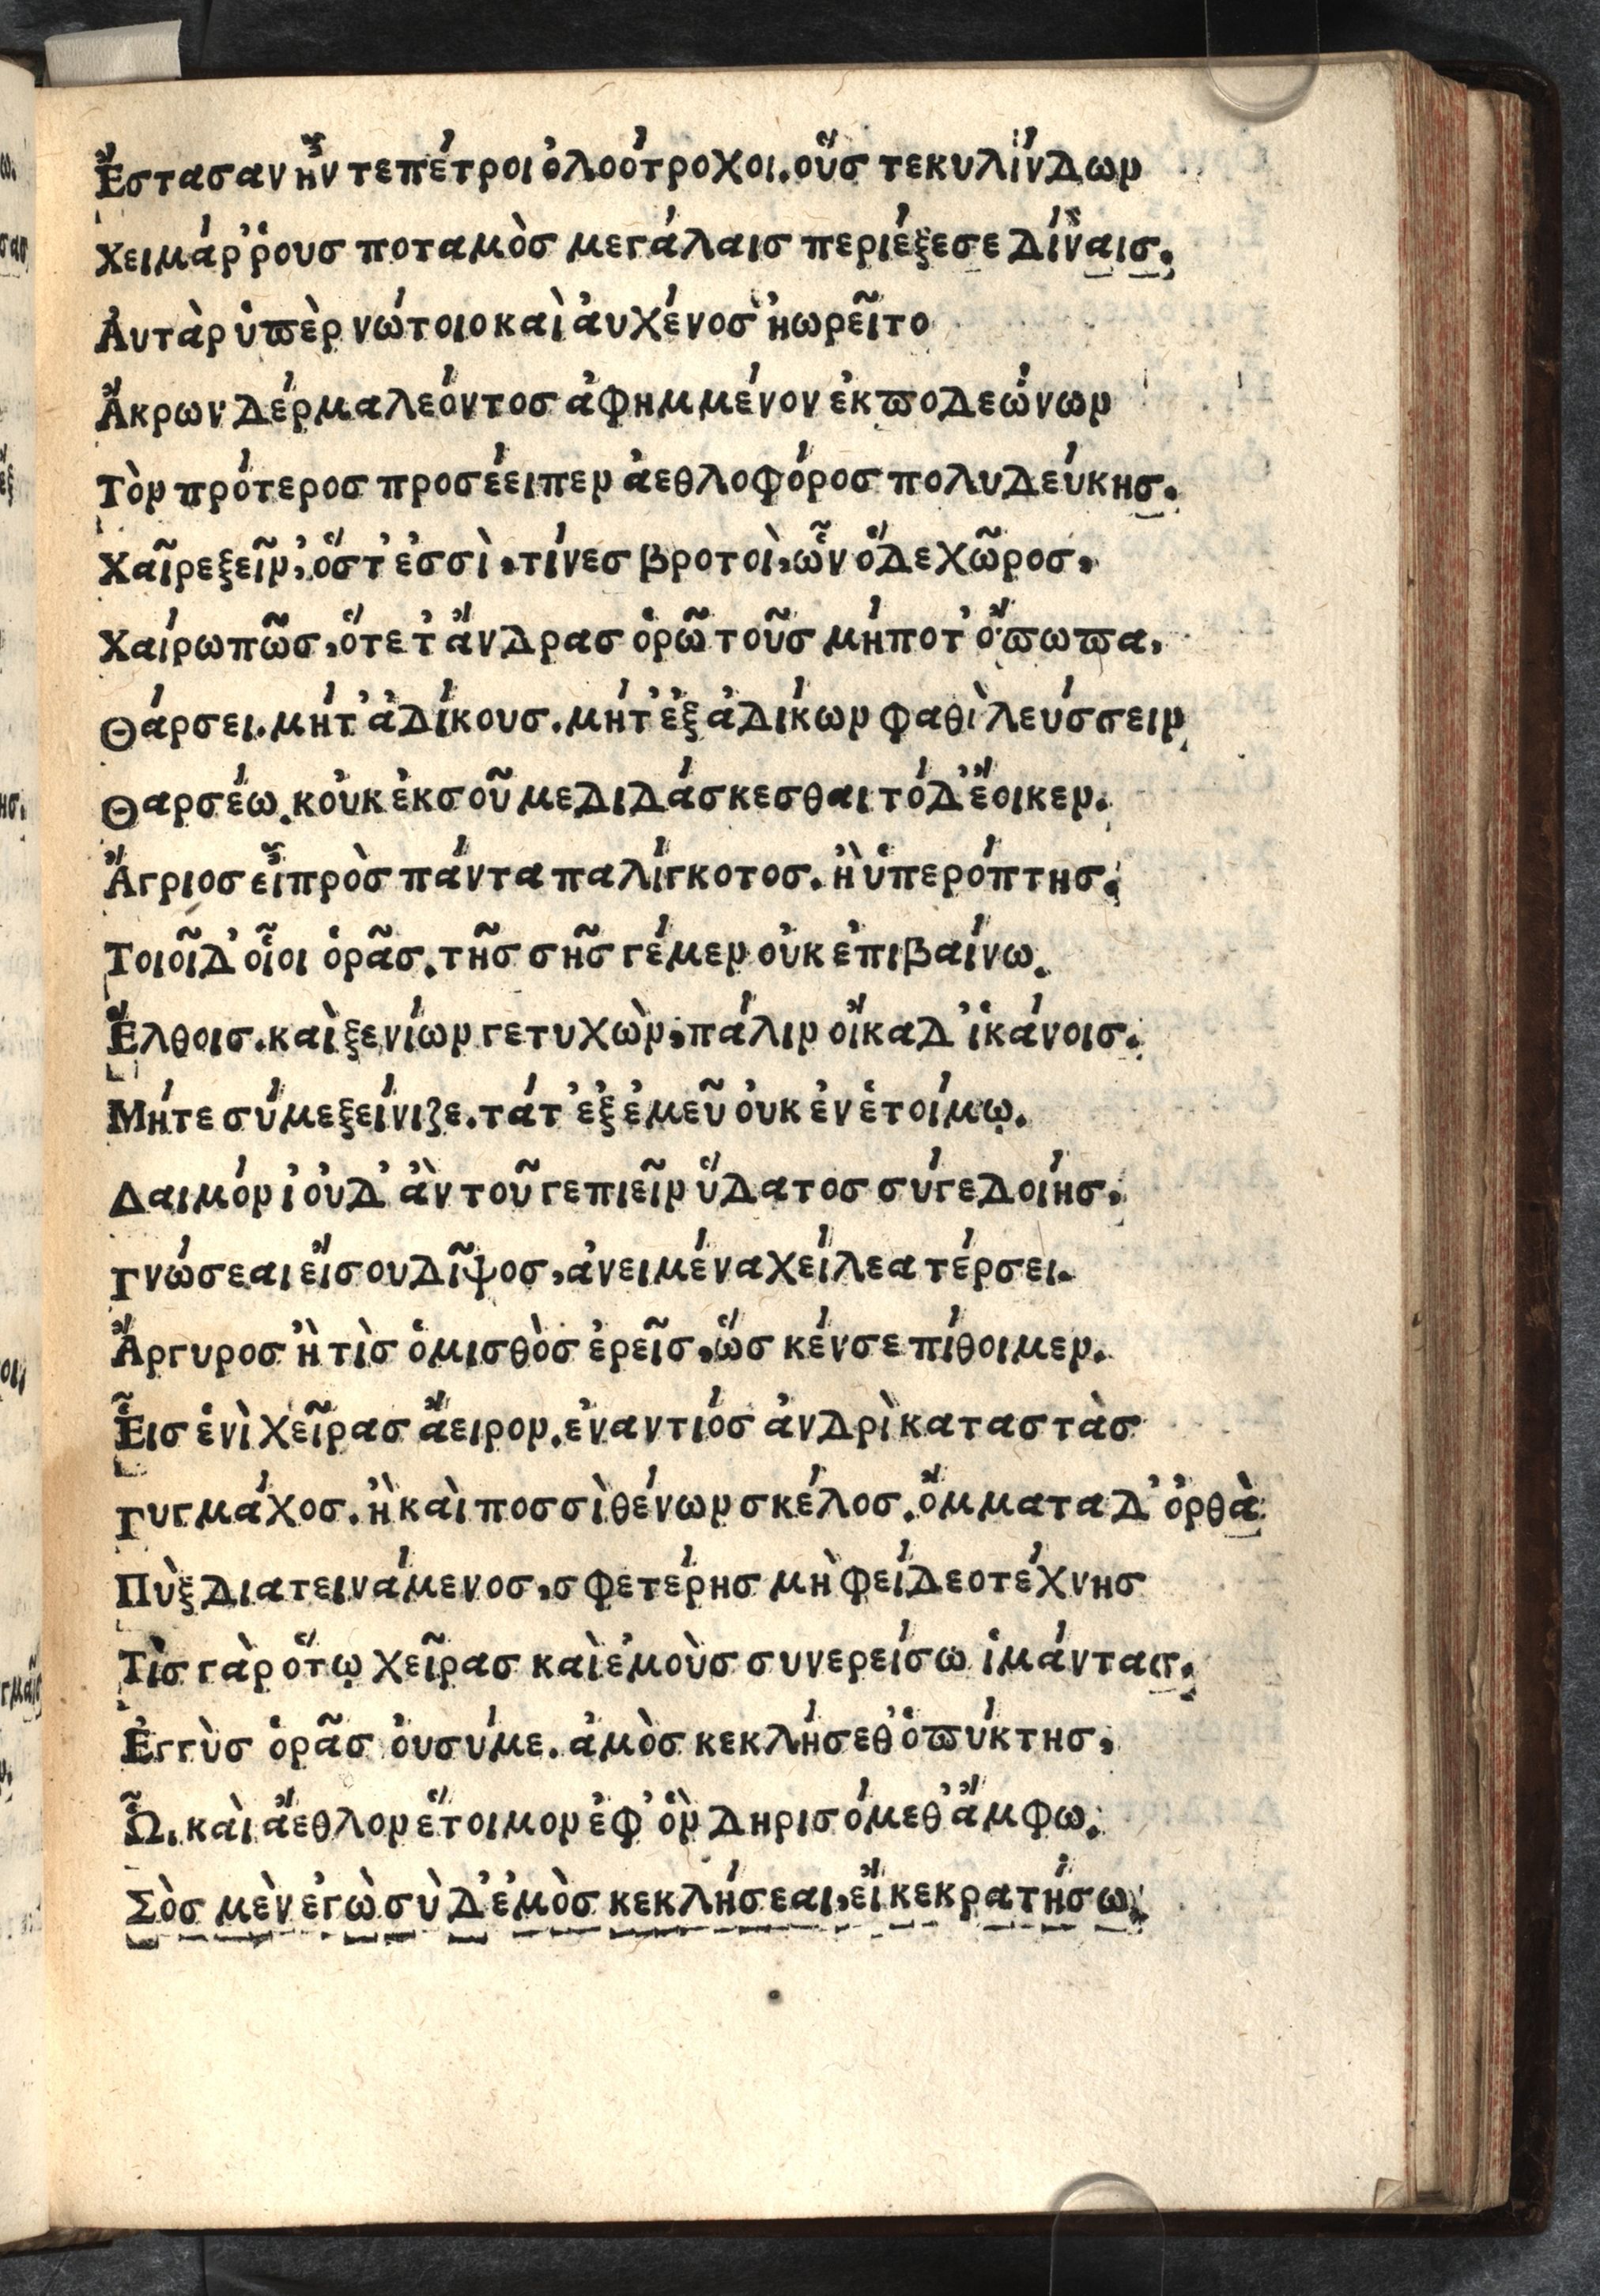 Ἔστασαν ἦν τε πέτροι ὀλοότροχοι. οὕσ τε κυλίνδων
Χειμάῤῥουσ ποταμὸσ μεγάλαισ περιέξεσε δίναισ.
Ἀυτὰρ ὑπὲρ νώτοιο καὶ ἀυχένοσ ἠωρεῖτο
Ἄκρων δέρμα λεόντοσ ἀφημμένον ἐκ ποδεώνων
Τὸν πρότεροσ προσέειπεν ἀεθλοφόροσ πολυδεύκησ.
Χαῖρε ξεῖν', ὅστ' ἐσσὶ, τίνεσ βροτοὶ, ὧν ὅδε χῶροσ,
Χαίρω πῶσ, ὅτε τ' ἄνδρασ ὁρῶ τοῦσ μήποτ' ὄπωπα,
Θάρσει. μήτ' ἀδίκουσ. μήτ' ἐξ ἀδίκων φαθὶ λεύσσειν
Θαρσέω. κοὐκ ἐκ σοῦ με διδάσκεσθαι τόδ' ἔοικεν.
Ἄγριοσ εἶ πρὸσ πάντα παλίγκοτοσ. ἢ ὑπερόπτησ.
Τοιοῖδ' οἷοι ὁρᾶσ. τῆσ σῆσ γέ μεν οὐκ ἐπιβαίνω.
Ἔλθοισ. καὶ ξενίων γε τυχὼν, πάλιν οἴκαδ' ἱκάνοισ.
Μήτε σύ με ξείνιζε. τάτ' ἐξ ἐμεῦ ὀυκ ἐν ἑτοίμῳ.
Δαιμόνι' ὀυδ' ἂν τοῦ γε πιεῖν ὕδατοσ σύγε δοίησ,
Γνώσεαι εἴ σου δῖψοσ, ἀνειμένα χείλεα τέρσει.
Ἄργυροσ ἢ τὶσ ὁ μισθὸσ ἐρεῖσ, ὥσ κέν σε πίθοιμεν.
἗ισ ἑνὶ χεῖρασ ἄειρον. ἐναντιόσ ἀνδρὶ καταστὰσ
Γυγμάχοσ. ἢ καὶ ποσσὶ θένων σκέλοσ. ὄμματα δ' ὀρθὰ
Πὺξ διατεινάμενοσ, σφετέρησ μὴ φείδεο τέχνησ
Τὶσ γὰρ ὅτῳ χεῖρασ καὶ ἐμοὺσ συνερείσω ἱμάντασ.
Ἐγγὺσ ὁρᾶσ ὀυ σύ με. ἀμὸσ κεκλήσεθ' ὁ πύκτησ,
Ὦ. καὶ ἄεθλον ἕτοιμον ἐφ' ὃν δηρισόμεθ' ἄμφω.
Σὸσ μὲν ἐγὼ σὺ δ' ἐμὸσ κεκλήσεαι, εἴ κε κρατήσω.